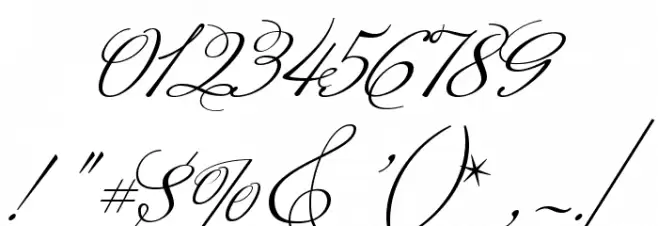 0123456789
! " # $ % & ' ( ) * , ~ . /